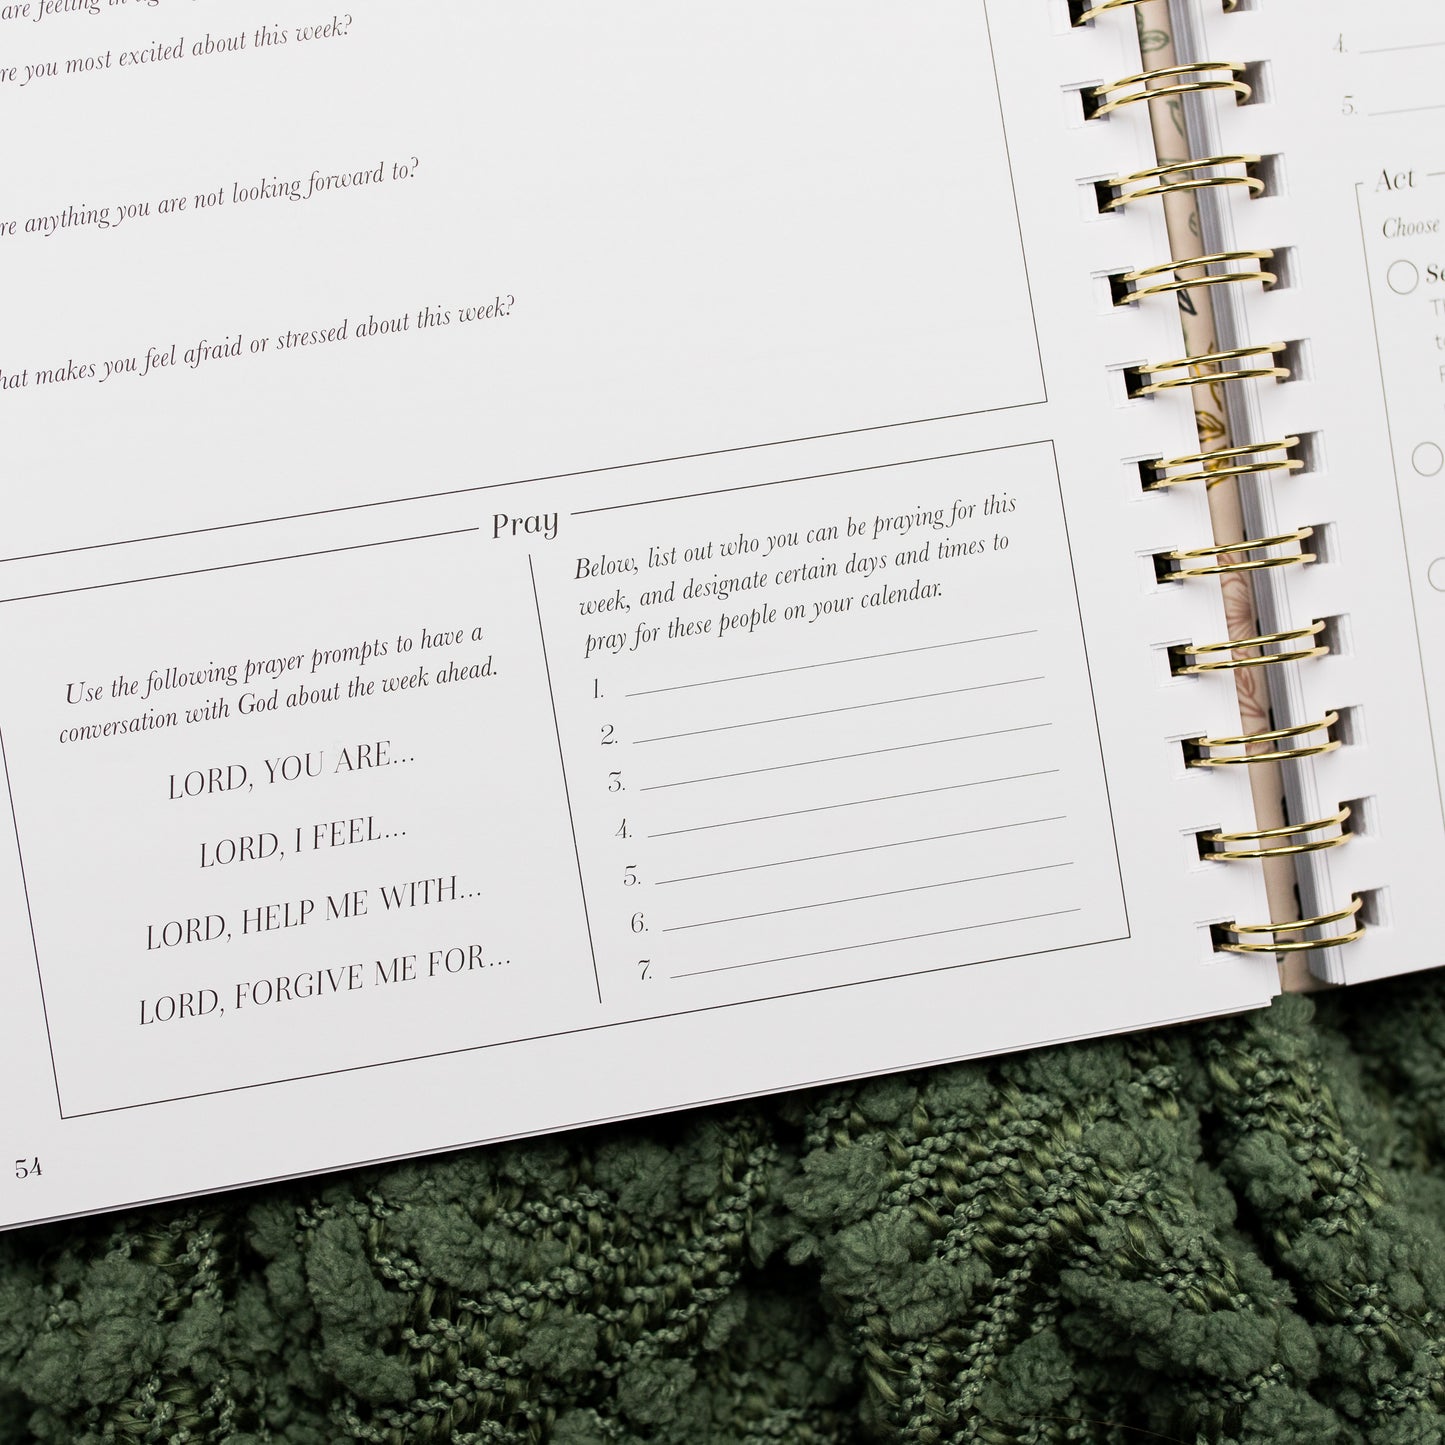 are feeling
re you most excited about this week?
re anything you are not looking forward to?
hat makes you feel afraid or stressed about this week?
Pray
Use the following prayer prompts to have a
conversation with God about the week ahead.
LORD, YOU ARE...
LORD, I FEEL...
LORD, HELP ME WITH...
LORD, FORGIVE ME FOR...
Below, list out who you can be praying for this
week, and designate certain days and times to
pray for these people on your calendar.
1.
2.
3.
4.
5.
6.
7.
54
4.
5.
Act
Choose